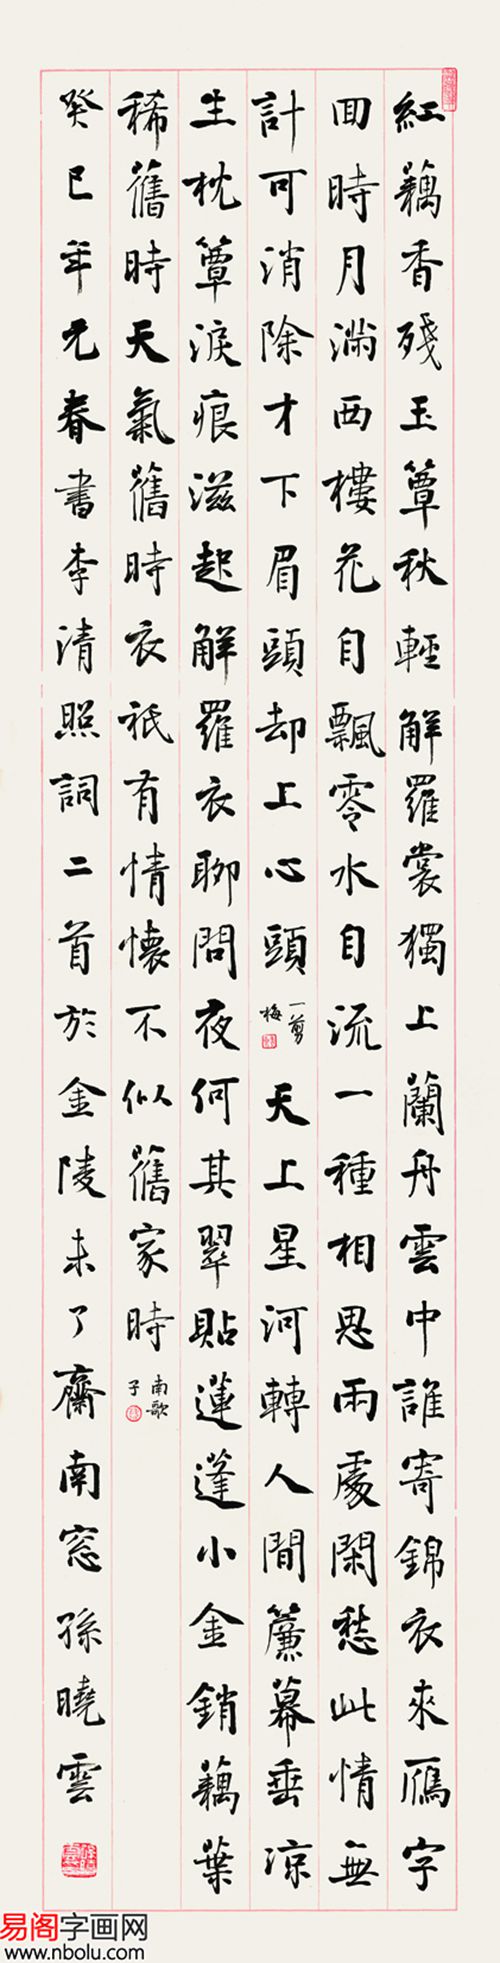 紅藕香殘玉簟秋輕解羅裳獨上蘭舟雲中誰寄錦衣來鴈字
回時月滿西樓花自飄零水自流一種相思兩處閑愁此情無
計可消除才下眉頭却上心頭
一剪
梅
天上星河轉人間簾幕垂涼
生枕簟淚痕滋起解羅衣聊問夜何其翠貼蓮蓬小金銷藕葉
稀舊時天氣舊時衣衹有情懷不似舊家時
南歌
子
癸巳年元春書李清照詞二首於金陵未了齋南窓孫曉雲
易阁字画网
www.nbolu.com